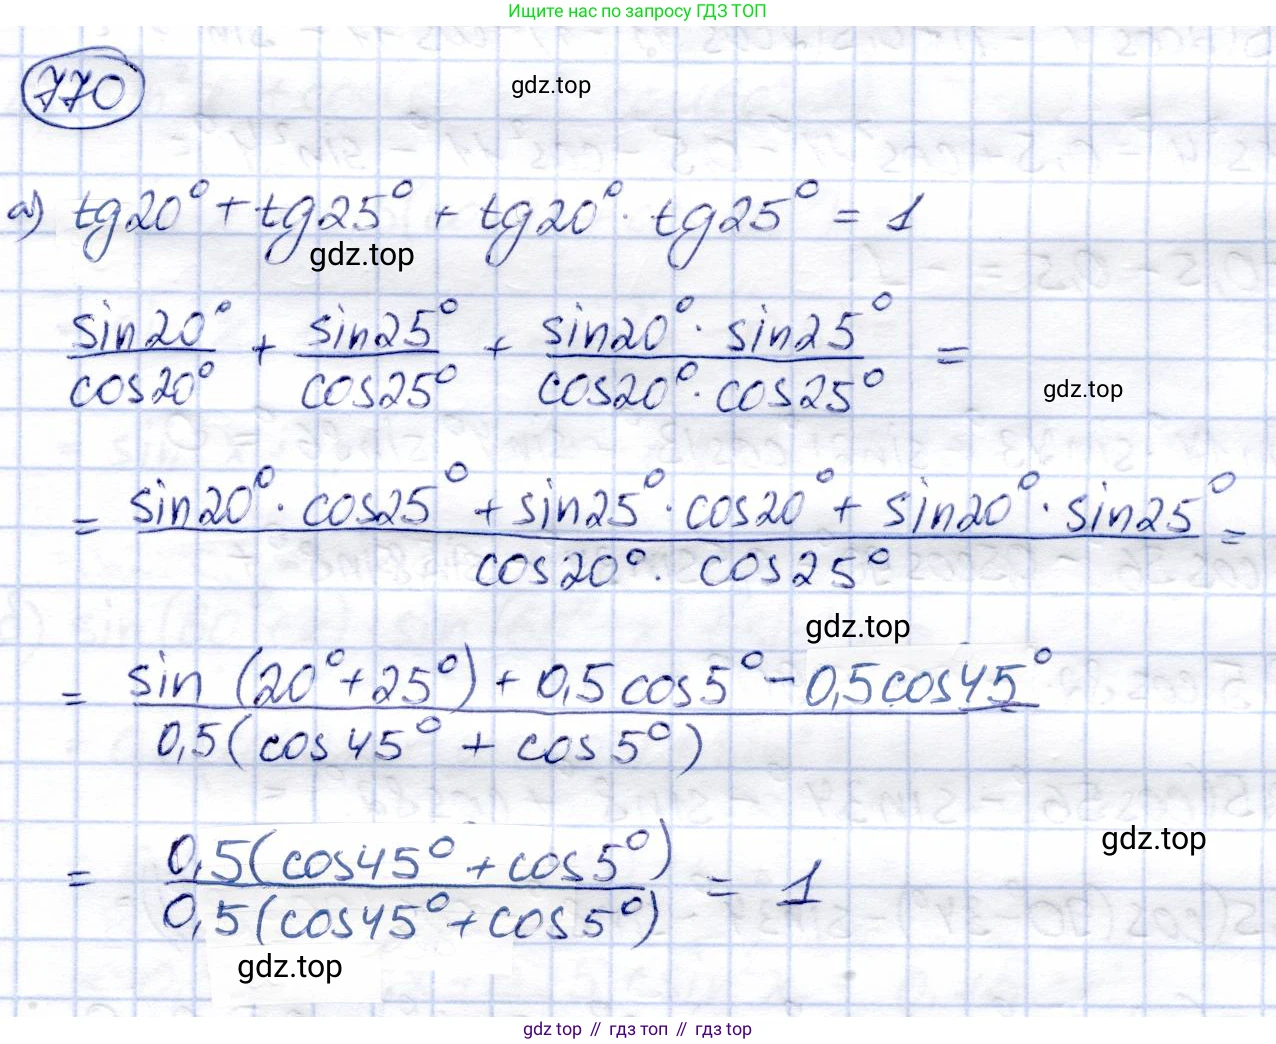 Ищите нас по запросу ГДЗ ТОП
770
gdz.top
а) tg20° + tg25° + tg20° · tg25° = 1
gdz.top
sin20°/cos20° + sin25°/cos25° + sin20° · sin25°/cos20° · cos25° =
gdz.top
= sin20° · cos25° + sin25° · cos20° + sin20° · sin25°/cos20° · cos25° =
gdz.top
= sin (20° + 25°) + 0,5 cos5° - 0,5cos45°/0,5(cos45° + cos5°)
gdz.top
= 0,5(cos45° + cos5°)/0,5(cos45° + cos5°) = 1
gdz.top
gdz top // гдз топ // гдз top